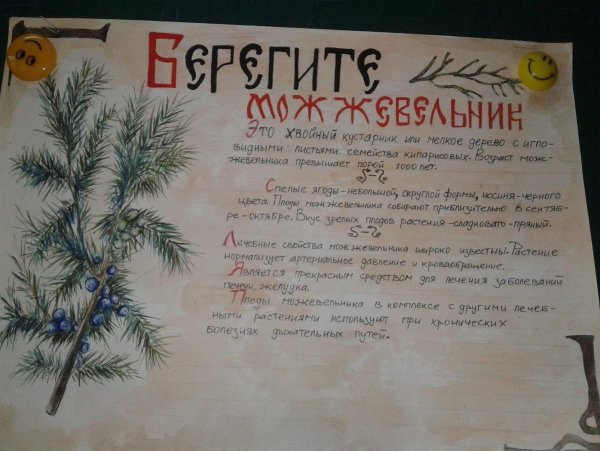 БЕРЕГИТЕ
МОЖЖЕВЕЛЬНИК
Это хвойный кустарник или мелкое дерево с игло-
видными листьями семейства кипарисовых. Возраст мож-
жевельника превышает порой 1000 лет.
Спелые ягоды-небольшой, округлой формы, иссиня-черного
цвета. Плоды можжевельника собирают приблизительно в сентяб-
ре-октябре. Вкус зрелых плодов растения-сладковато-пряный.
Лечебные свойства можжевельника широко известны. Растение
нормализует артериальное давление и кровообращение.
Является прекрасным средством для лечения заболеваний
печени, желудка.
Плоды можжевельника в комплексе с другими лечеб-
ными растениями используют при хронических
болезнях дыхательных путей.